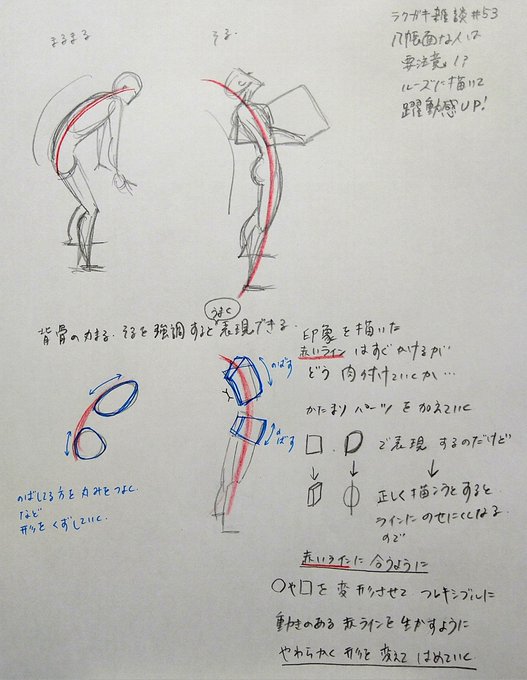 ラクガキ雑談 #53
几帳面な人は
要注意!?
ルーズに描いて
躍動感UP!
まるまる
そる.
うまく
背骨の丸まる. そるを強調すると 表現できる.
のばす
のばす
のばしてる方を丸みをつよく.
など
形をくずしていく.
印象を描いた
赤いライン はすぐかけるが
どう 肉付けていくか…
かたまり パーツ を加えていく
□. ○で表現 するのだけど
正しく描こうとすると
ラインにのせにくくなる.
ので
赤いラインに合うように
○や□を変形させて フレキシブルに
動きのある 赤ラインを生かすように
やわらかく形を変えて はめていく